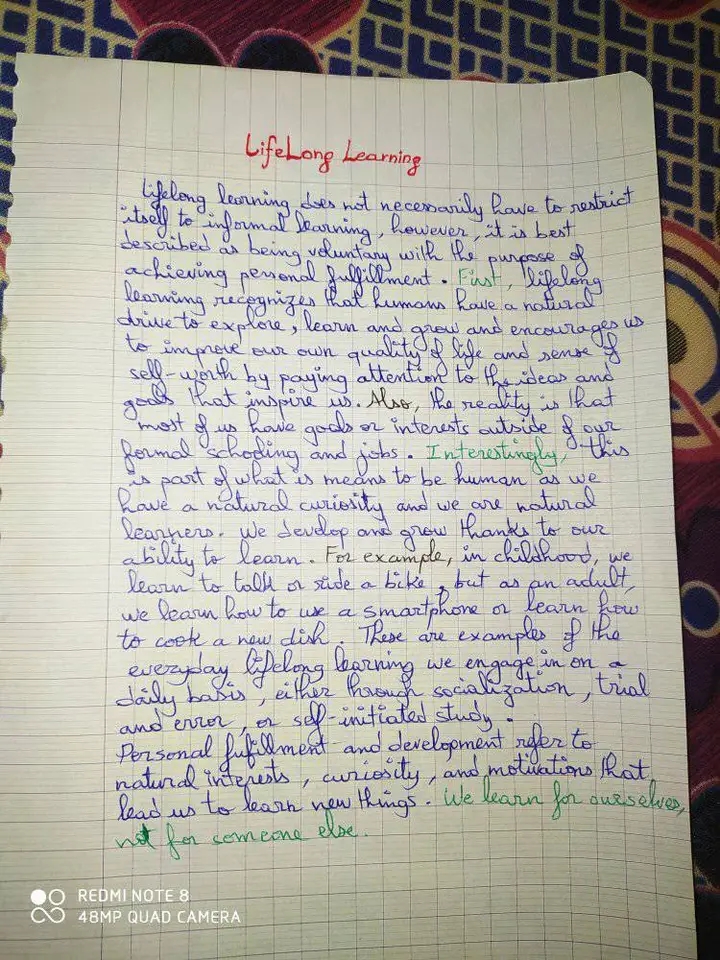 LifeLong Learning
Lifelong learning does not necessarily have to restrict
itself to informal learning, however, it is best
described as being voluntary with the purpose of
achieving personal fulfillment. First, lifelong
learning recognizes that humans have a natural
drive to explore, learn and grow and encourages us
to improve our own quality of life and sense of
self-worth by paying attention to the ideas and
goals that inspire us. Also, the reality is that
most of us have goals or interests outside of our
formal schooling and jobs. Interestingly, this
is part of what is means to be human as we
have a natural curiosity and we are natural
learners. We develop and grow thanks to our
ability to learn. For example, in childhood, we
learn to talk or ride a bike, but as an adult,
we learn how to use a smartphone or learn how
to cook a new dish. These are examples of the
everyday lifelong learning we engage in on a
daily basis, either through socialization, trial
and error, or self-initiated study.
Personal fufillment and development refer to
natural interests, curiosity, and motivations that
lead us to learn new things. We learn for ourselves,
not for someone else.
REDMI NOTE 8
48MP QUAD CAMERA